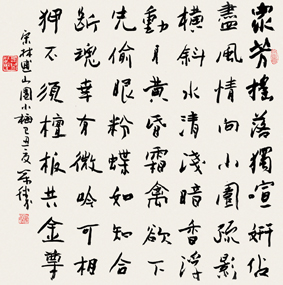 眾芳搖落獨喧妍佔
盡風情向小園疏影
橫斜水清淺暗香浮
動月黃昏霜禽欲下
先偷眼粉蝶如知合
斷魂幸有微吟可相
狎不須檀板共金尊
宋林逋山園小梅